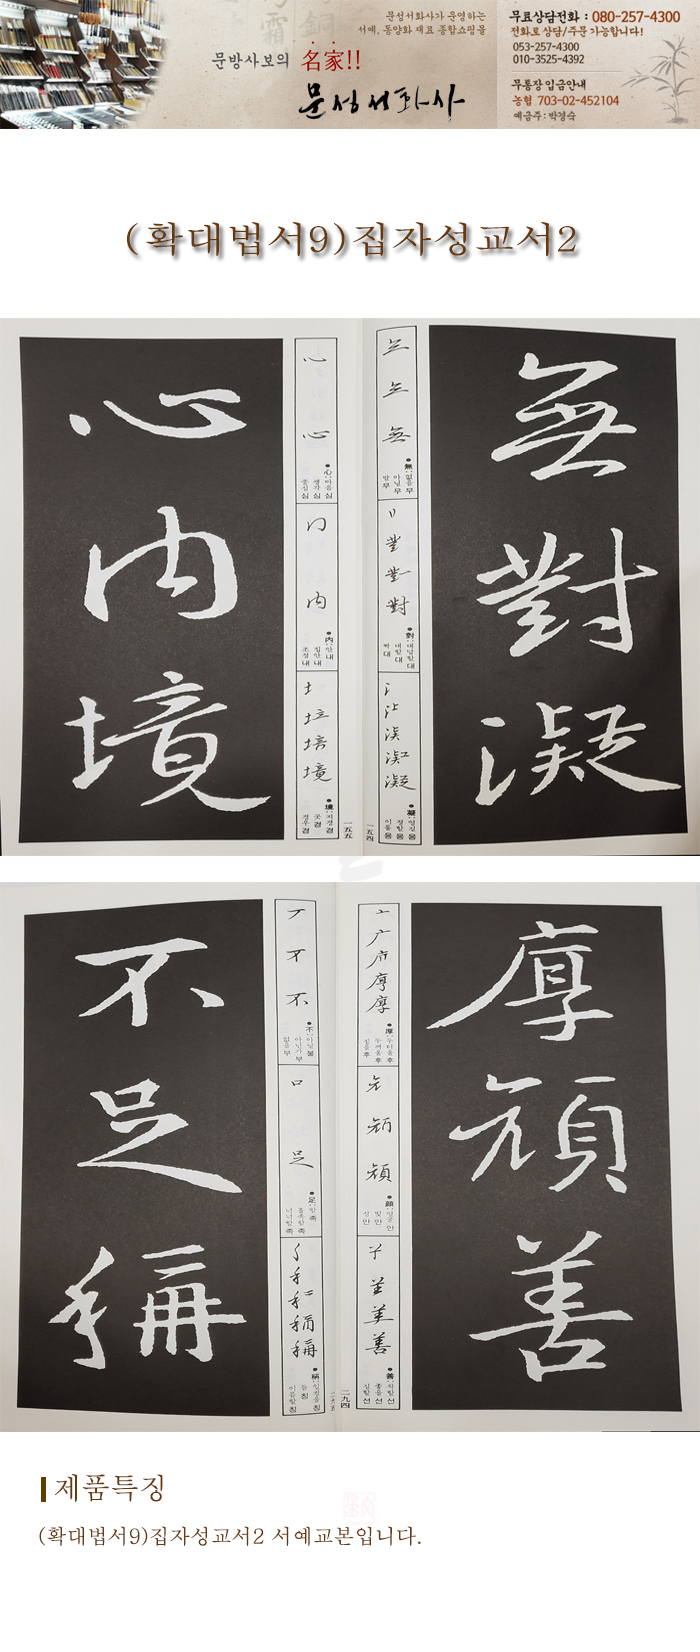 문방사보의 名家!!
문성서화사가 운영하는
서예, 동양화 재료 종합쇼핑몰
문성서화사
무료상담전화 : 080-257-4300
전화로 상담/주문 가능합니다!
053-257-4300
010-3525-4392
무통장 입금안내
농협 703-02-452104
예금주 : 박경숙
(확대법서9)집자성교서2
無
對
凝
無 없을 무
아닐 무
말 무
對 대답할 대
대할 대
짝 대
凝 엉길 응
정할 응
이룰 응
一五四
心
內
境
心 마음 심
생각 심
중심 심
內 안 내
성안 내
조정 내
境 지경 경
곳 경
경우 경
一五五
厚
顔
善
厚 두터울 후
두께 후
짙을 후
顔 얼굴 안
빛 안
성 안
善 착할 선
좋을 선
친할 선
二九四
不
足
稱
不 아닐 불
아닌가 부
없을 부
足 발 족
흡족할 족
넉넉할 족
稱 일컬을 칭
들 칭
이름할 칭
제품특징
(확대법서9)집자성교서2 서예교본입니다.